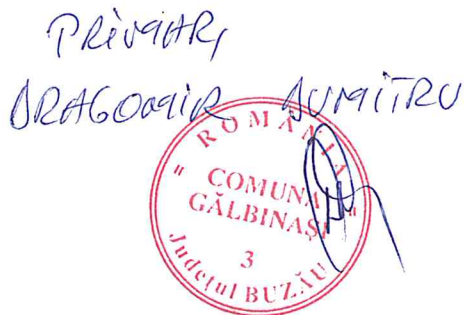 PRIMAR,
DRAGOMIR DUMITRU
ROMÂNIA
COMUNA
GĂLBINAȘI
3
Județul BUZĂU